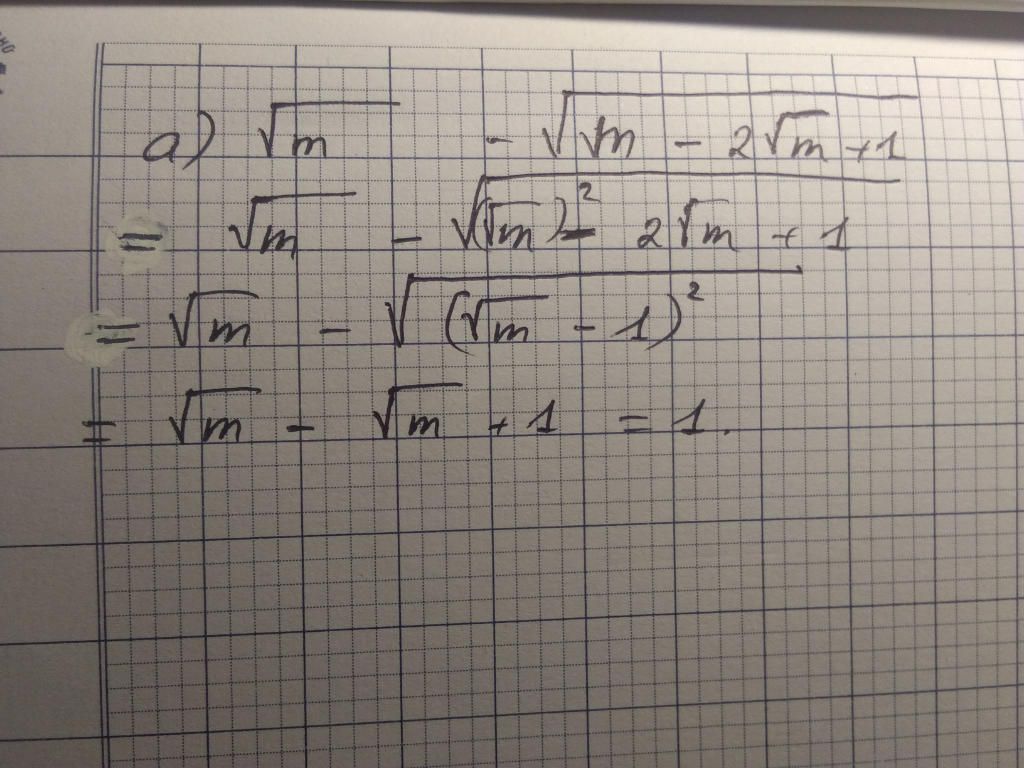 a) √m - √(√m - 2√m + 1)
= √m - √((√m)² - 2√m + 1)
= √m - √((√m - 1)²)
= √m - √m + 1 = 1.